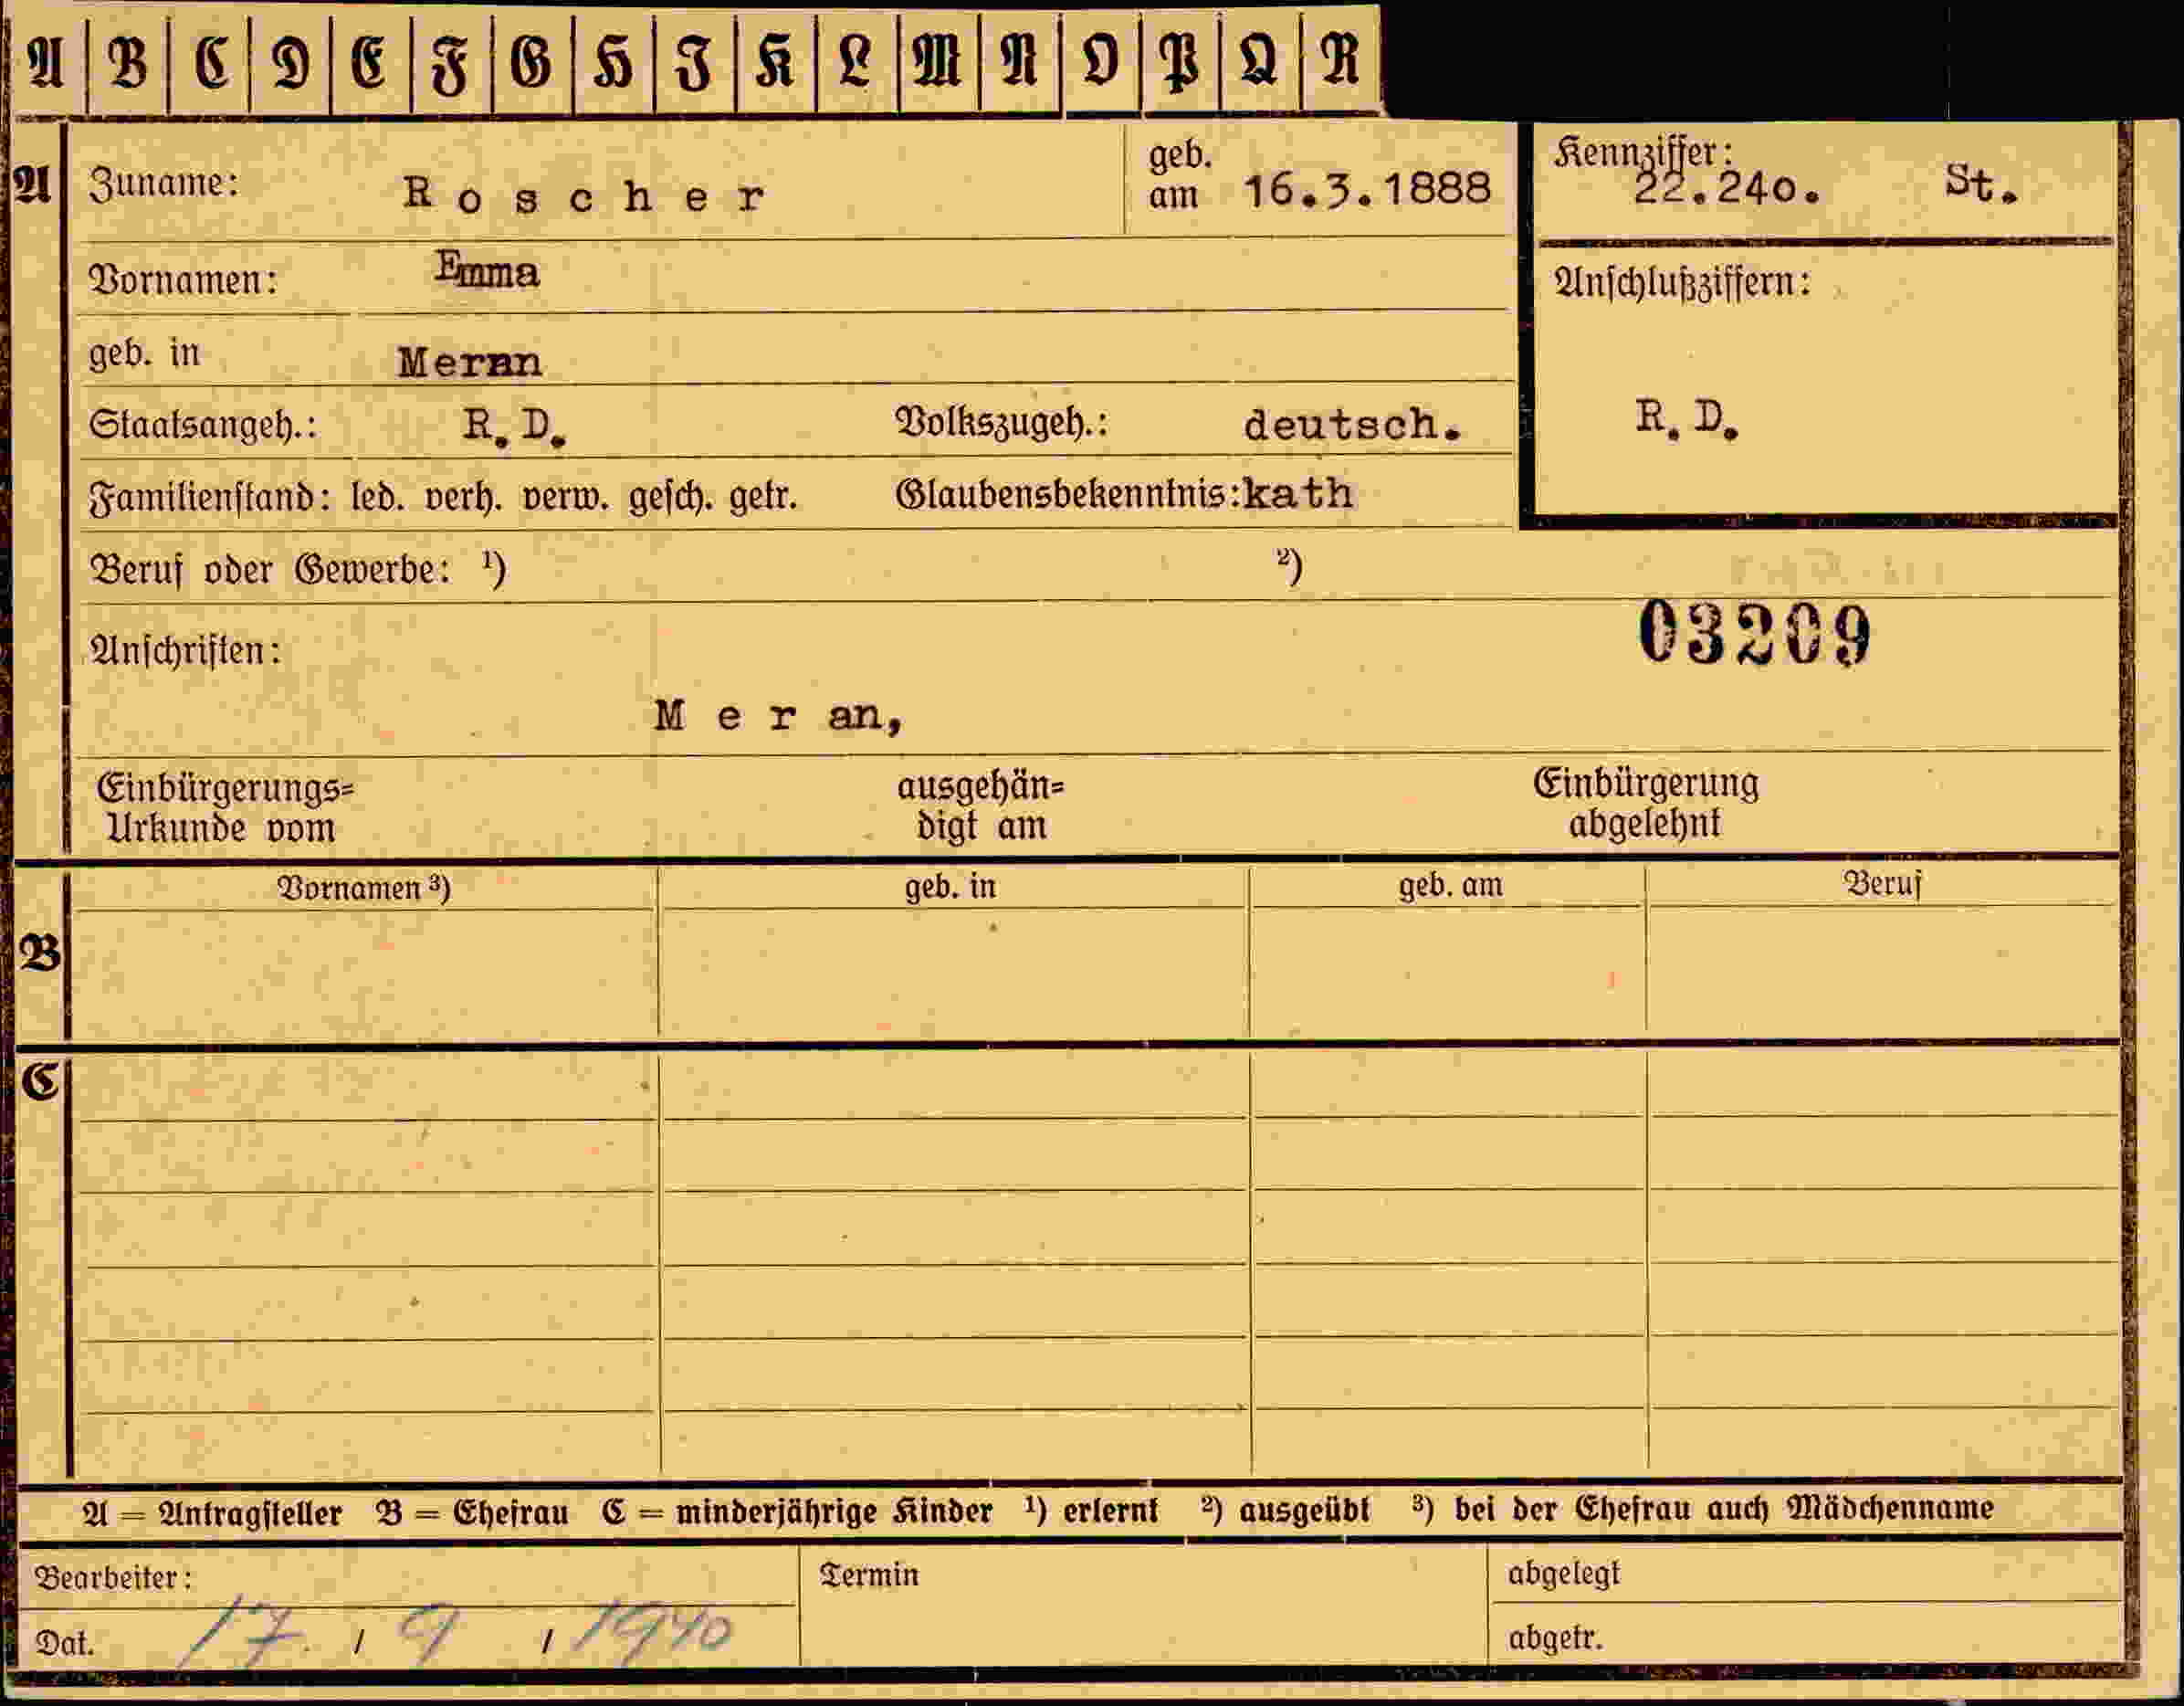 A B C D E F G H I K L M N O P Q R
A Zuname: Roscher geb. am 16.3.1888
Kennziffer: 22.24o. St.
Vornamen: Emma
Anschlußziffern:
geb. in Meran
Staatsangeh.: R.D. Volkszugeh.: deutsch. R.D.
Familienstand: led. verh. verw. gesch. getr. Glaubensbekenntnis: kath
Beruf oder Gewerbe: ¹) ²)
03209
Anschriften:
Meran,
Einbürgerungs= ausgehän= Einbürgerung
Urkunde vom digt am abgelehnt
Vornamen ³) geb. in geb. am Beruf
B
C
A = Antragsteller B = Ehefrau C = minderjährige Kinder ¹) erlernt ²) ausgeübt ³) bei der Ehefrau auch Mädchenname
Bearbeiter: Termin abgelegt
Dat. 17. / 9 / 1940 abgetr.